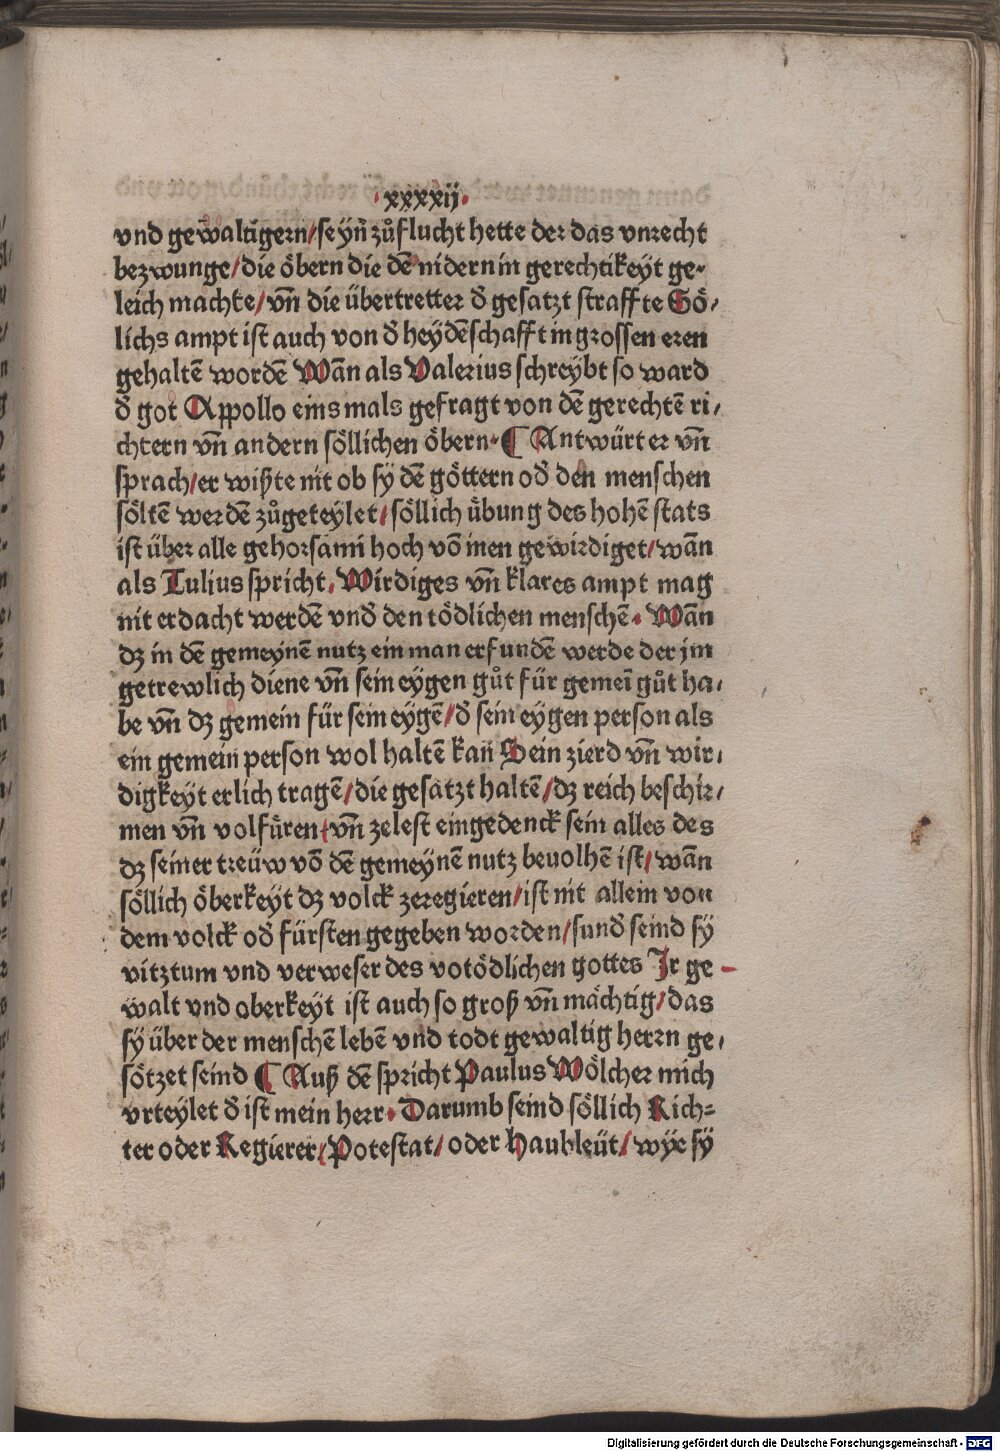 ·xxxxij·
vnd gewaltigern/seyñ zůflucht hette der das vnrecht
bezwunge/die öbern die dē nidern in gerechtikeyt ge-
leich machte/vñ die übertretter đ gesatzt straffte Sö-
lichs ampt ist auch von đ heydēschafft in grossen eren
gehaltē wordē Wān als Valerius schreybt so ward
đ got Appollo eins mals gefragt von dē gerechtē ri-
chtern vñ andern söllichen öbern· ¶ Antwürt er vñ
sprach/er wißte nit ob sy dē göttern ođ den menschen
söltē werdē zůgeteylet/söllich übung des hohē stats
ist über alle gehorsami hoch vō inen gewirdiget/wān
als Tulius spricht. Wirdiges vñ klares ampt mag
nit erdacht werdē vnđ den tödlichen menschē. Wān
dz in dē gemeynē nutz ein man erfundē werde der jm
getrewlich diene vñ sein eygen gůt für gemeī gůt ha-
be vñ dz gemein für sein eygē/đ sein eygen person als
ein gemein person wol haltē kañ Sein zierd vñ wir-
digkeyt erlich tragē/die gesatzt haltē/dz reich beschir-
men vñ volfüren/vñ zelest eingedenck sein alles des
dz seiner treüw vō dē gemeynē nutz beuolhē ist/wān
söllich öberkeyt dz volck zeregieren/ist nit allein von
dem volck ođ fürsten gegeben worden/sunđ seind sy
vitztum vnd verweser des votödlichen gottes Jr ge-
walt vnd oberkeyt ist auch so groß vñ mächtig/das
sy über der menschē lebē vnd todt gewaltig herrn ge-
sötzet seind ¶ Auß dē spricht Paulus Wölcher mich
vrteylet đ ist mein herr. Darumb seind söllich Rich-
ter oder Regierer/Potestat/oder haubleüt/wye sy
Digitalisierung gefördert durch die Deutsche Forschungsgemeinschaft - DFG